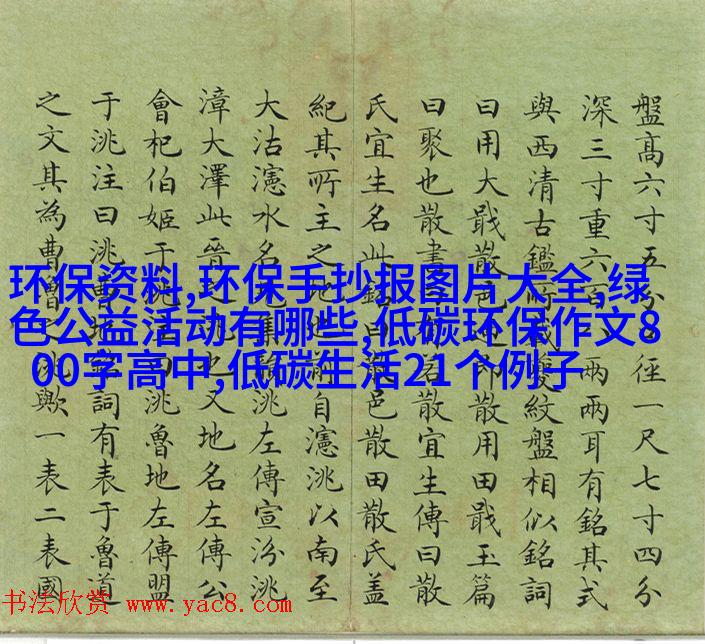 盤高六寸五分徑一尺七寸四分
深三寸重六百兩兩耳有銘其式
與西清古鑑所載夔紋盤相似銘詞
曰用大戩散邑即散用田戩玉篇
曰聚也散書名散宜生傳曰散
氏宜生名此銘曰散邑散田散氏蓋
紀其所主之地也前自瀗洮以南至
大沽瀗水名集韻洮左傳宣汾洮
漳大澤此晉洮也又地名左傳公
會杞伯姬于洮洮魯地左傳盟
于洮注曰洮曹地銘詞有表于魯道
之文其為曹魯之洮歟一表二表國
环保资料,环保手抄报图片大全,绿
色公益活动有哪些,低碳环保作文8
00字高中,低碳生活21个例子
书法欣赏 www.yac8.com